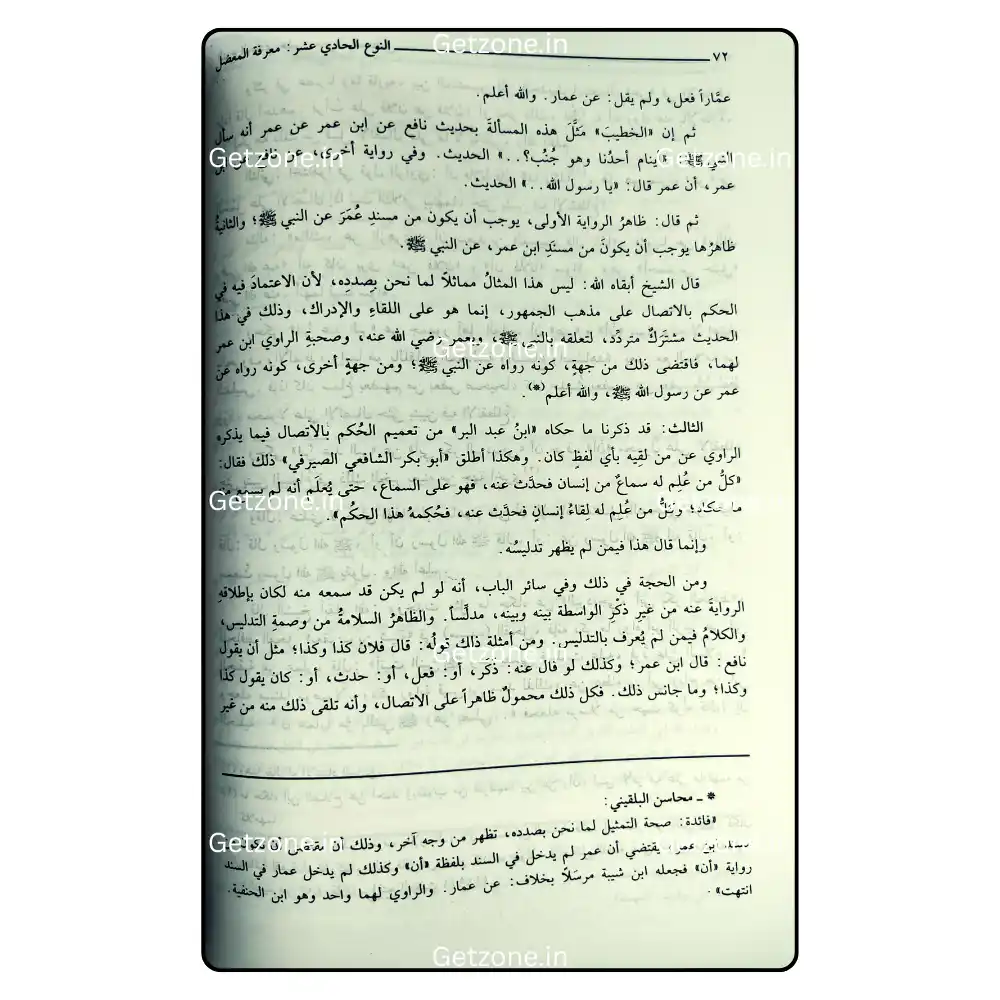 ٧٢ النوع الحادي عشر: معرفة المعضل
عمَّاراً فعل، ولم يقل: عن عمار. والله أعلم.
ثم إن «الخطيبَ» مَثَّلَ هذه المسألةَ بحديث نافع عن ابن عمر عن عمر أنه سأل
النبي ﷺ: «أينام أحدُنا وهو جُنُب؟..» الحديث. وفي رواية أخرى، عن نافع عن ابن
عمر، أن عمر قال: «يا رسول الله..» الحديث.
ثم قال: ظاهرُ الرواية الأولى، يوجب أن يكون من مسندِ عُمَرَ عن النبي ﷺ؛ والثانيةُ
ظاهرُها يوجب أن يكونَ من مسنَدِ ابن عمر، عن النبي ﷺ.
قال الشيخ أبقاه الله: ليس هذا المثالُ مماثلاً لما نحن بِصددِه، لأن الاعتمادَ فيه في
الحكم بالاتصال على مذهب الجمهور، إنما هو على اللقاءِ والإدراك، وذلك في هذا
الحديث مشتَركٌ متردِّد، لتعلقه بالنبي ﷺ، وبعمر رضي الله عنه، وصحبةِ الراوي ابن عمر
لهما، فاقتضى ذلك من جهةٍ، كونَه رواه عن النبي ﷺ؛ ومن جهةٍ أخرى، كونَه رواه عن
عمر عن رسول الله ﷺ، والله أعلم(*).
الثالث: قد ذكرنا ما حكاه «ابنُ عبد البر» من تعميم الحُكم بالاتصال فيما يذكره
الراوي عن من لقِيه بأي لفظٍ كان. وهكذا أطلق «أبو بكر الشافعي الصيرفي» ذلك فقال:
«كلُّ من عُلِم له سماعٌ من إنسان فحدَّث عنه، فهو على السماع، حتى يُعلَم أنه لم يسمع منه
ما حكاه؛ وكلُّ من عُلِم له لِقاءُ إنسانٍ فحدَّث عنه، فحُكمهُ هذا الحكُم».
وإنما قال هذا فيمن لم يظهر تدليسُه.
ومن الحجة في ذلك وفي سائر الباب، أنه لو لم يكن قد سمعه منه لكان بإطلاقهِ
الروايةَ عنه من غيرِ ذكْرِ الواسطة بينه وبينه، مدلِّساً. والظاهرُ السلامةُ من وصمةِ التدليس،
والكلامُ فيمن لم يُعرف بالتدليس. ومن أمثلة ذلك قولُه: قال فلان كذا وكذا؛ مثل أن يقول
نافع: قال ابن عمر؛ وكذلك لو قال عنه: ذكَر، أو: فعل، أو: حدث، أو: كان يقول كذا
وكذا؛ وما جانس ذلك. فكل ذلك محمولٌ ظاهراً على الاتصال، وأنه تلقى ذلك منه من غير
* ـ محاسن البلقيني:
«فائدة: صحة التمثيل لما نحن بصدده، تظهر من وجه آخر، وذلك أن
ابن عمر، يقتضي أن عمر لم يدخل في السند بلفظة «أن» وكذلك لم يدخل عمار في السند
رواية «أن» فجعله ابن شيبة مرسَلاً بخلاف: عن عمار. والراوي لهما واحد وهو ابن الحنفية.
انتهت».
Getzone.in
Getzone.in
Getzone.in
Getzone.in
Getzone.in
Getzone.in
Getzone.in
Getzone.in
Getzone.in
Getzone.in